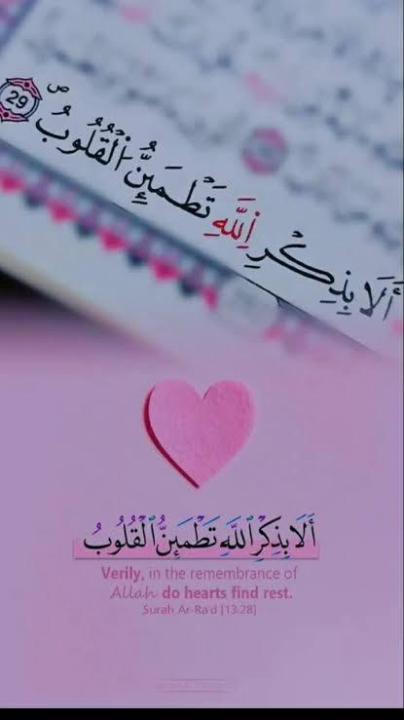 أَلَا بِذِكْرِ اللَّهِ تَطْمَئِنُّ الْقُلُوبُ ص 29
أَلَا بِذِكْرِ اللَّهِ تَطْمَئِنُّ الْقُلُوبُ
Verily, in the remembrance of
Allah do hearts find rest.
Surah Ar-Ra'd [13:28]